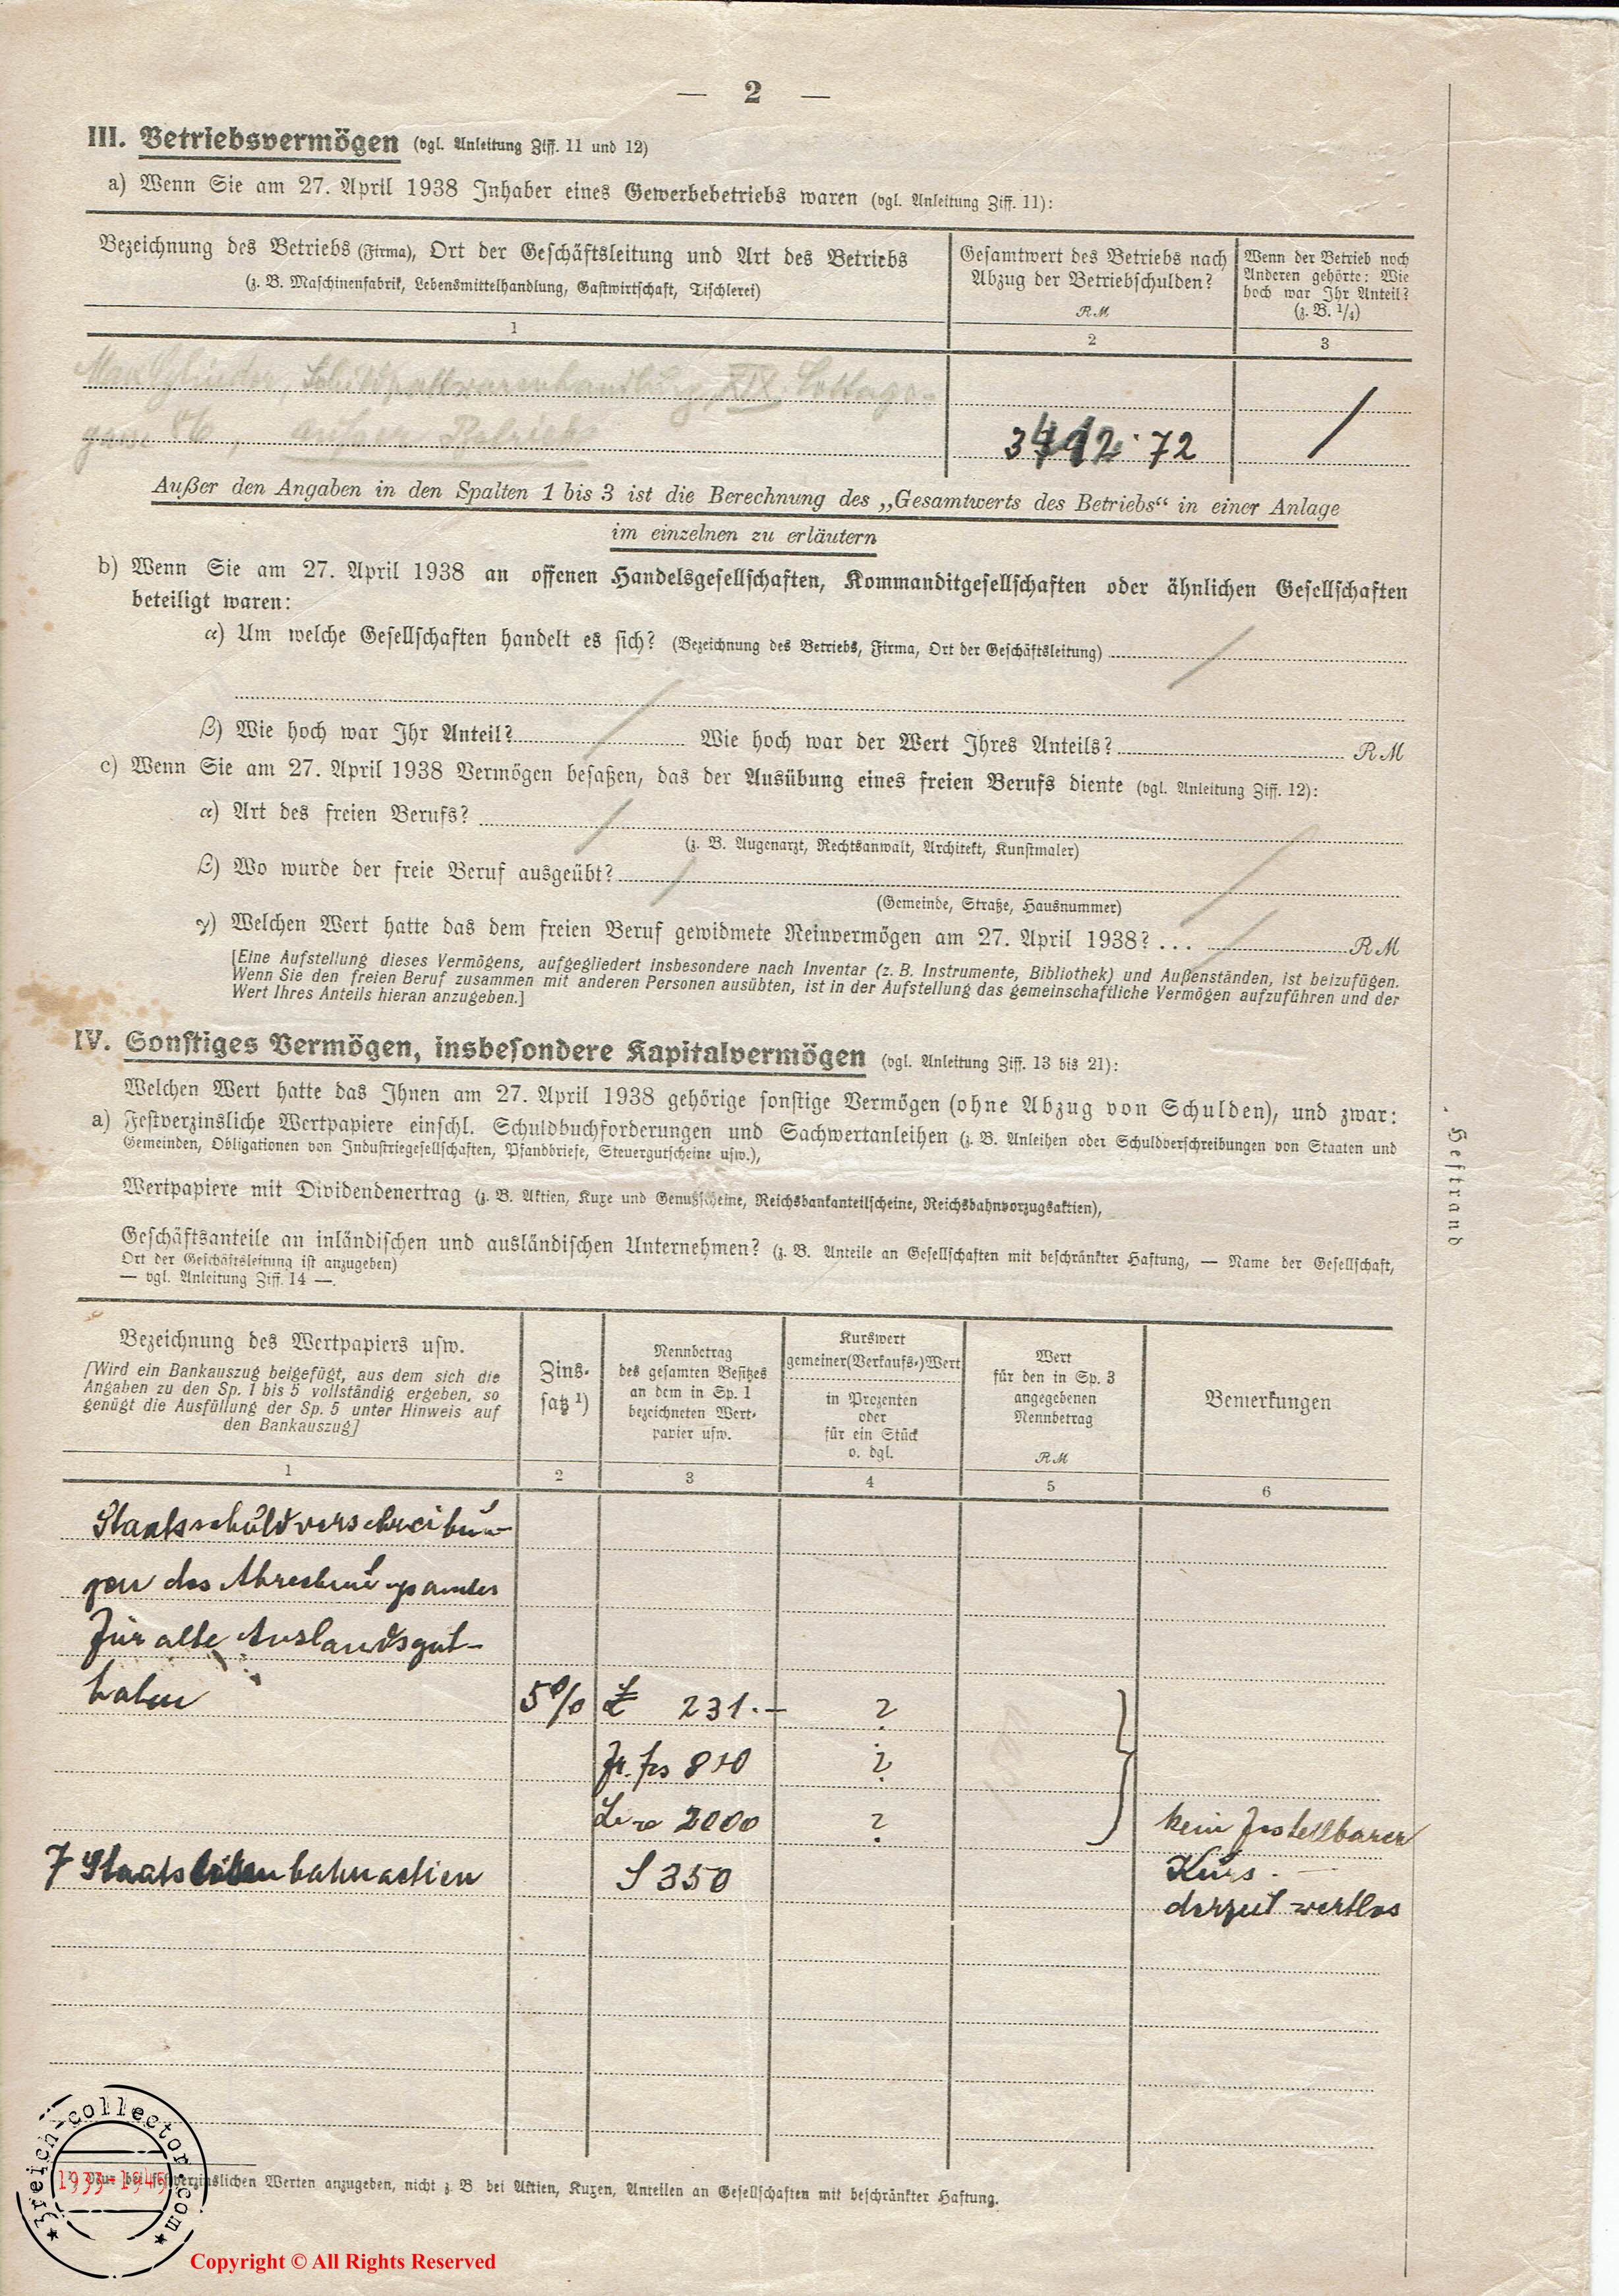 — 2 —
III. Betriebsvermögen (vgl. Anleitung Ziff. 11 und 12)
a) Wenn Sie am 27. April 1938 Inhaber eines Gewerbebetriebs waren (vgl. Anleitung Ziff. 11):
Bezeichnung des Betriebs (Firma), Ort der Geschäftsleitung und Art des Betriebs
(z. B. Maschinenfabrik, Lebensmittelhandlung, Gastwirtschaft, Tischlerei)
1
Gesamtwert des Betriebs nach
Abzug der Betriebschulden?
RM
2
Wenn der Betrieb noch
Anderen gehörte: Wie
hoch war Ihr Anteil?
(z. B. 1/4)
3
Schildpattwarenhandlung, XIX. Cottage-
gasse 86, außer Betrieb
72
/
Außer den Angaben in den Spalten 1 bis 3 ist die Berechnung des „Gesamtwerts des Betriebs“ in einer Anlage
im einzelnen zu erläutern
b) Wenn Sie am 27. April 1938 an offenen Handelsgesellschaften, Kommanditgesellschaften oder ähnlichen Gesellschaften
beteiligt waren:
α) Um welche Gesellschaften handelt es sich? (Bezeichnung des Betriebs, Firma, Ort der Geschäftsleitung) /
β) Wie hoch war Ihr Anteil? / Wie hoch war der Wert Ihres Anteils? RM
c) Wenn Sie am 27. April 1938 Vermögen besaßen, das der Ausübung eines freien Berufs diente (vgl. Anleitung Ziff. 12):
α) Art des freien Berufs? /
(z. B. Augenarzt, Rechtsanwalt, Architekt, Kunstmaler)
β) Wo wurde der freie Beruf ausgeübt? /
(Gemeinde, Straße, Hausnummer)
γ) Welchen Wert hatte das dem freien Beruf gewidmete Reinvermögen am 27. April 1938? ... / RM
[Eine Aufstellung dieses Vermögens, aufgegliedert insbesondere nach Inventar (z. B. Instrumente, Bibliothek) und Außenständen, ist beizufügen.
Wenn Sie den freien Beruf zusammen mit anderen Personen ausübten, ist in der Aufstellung das gemeinschaftliche Vermögen aufzuführen und der
Wert Ihres Anteils hieran anzugeben.]
IV. Sonstiges Vermögen, insbesondere Kapitalvermögen (vgl. Anleitung Ziff. 13 bis 21):
Welchen Wert hatte das Ihnen am 27. April 1938 gehörige sonstige Vermögen (ohne Abzug von Schulden), und zwar:
a) Festverzinsliche Wertpapiere einschl. Schuldbuchforderungen und Sachwertanleihen (z. B. Anleihen oder Schuldverschreibungen von Staaten und
Gemeinden, Obligationen von Industriegesellschaften, Pfandbriefe, Steuergutscheine usw.),
Wertpapiere mit Dividendenertrag (z. B. Aktien, Kuxe und Genußscheine, Reichsbankanteilscheine, Reichsbahnvorzugsaktien),
Geschäftsanteile an inländischen und ausländischen Unternehmen? (z. B. Anteile an Gesellschaften mit beschränkter Haftung, — Name der Gesellschaft,
Ort der Geschäftsleitung ist anzugeben)
— vgl. Anleitung Ziff. 14 —.
Heftrand
Bezeichnung des Wertpapiers usw.
[Wird ein Bankauszug beigefügt, aus dem sich die
Angaben zu den Sp. 1 bis 5 vollständig ergeben, so
genügt die Ausfüllung der Sp. 5 unter Hinweis auf
den Bankauszug]
1
Zins-
satz 1)
2
Nennbetrag
des gesamten Besitzes
an dem in Sp. 1
bezeichneten Wert-
papier usw.
3
Kurswert
gemeiner (Verkaufs-) Wert
in Prozenten
oder
für ein Stück
o. dgl.
4
Wert
für den in Sp. 3
angegebenen
Nennbetrag
RM
5
Bemerkungen
6
Staatsschuldverschreibun-
gen des Abrechnungsamtes
für alte Auslandsgut-
haben 5% £ 231.– ?
fr. frs 810 ?
Lire 2000 ? kein festellbarer
Kurs. –
7 Staats bahnactien S 350 derzeit wertlos
1) Nur bei festverzinslichen Werten anzugeben, nicht z. B. bei Aktien, Kuxen, Anteilen an Gesellschaften mit beschränkter Haftung.
3reich-collector.com
1933-1945
Copyright © All Rights Reserved